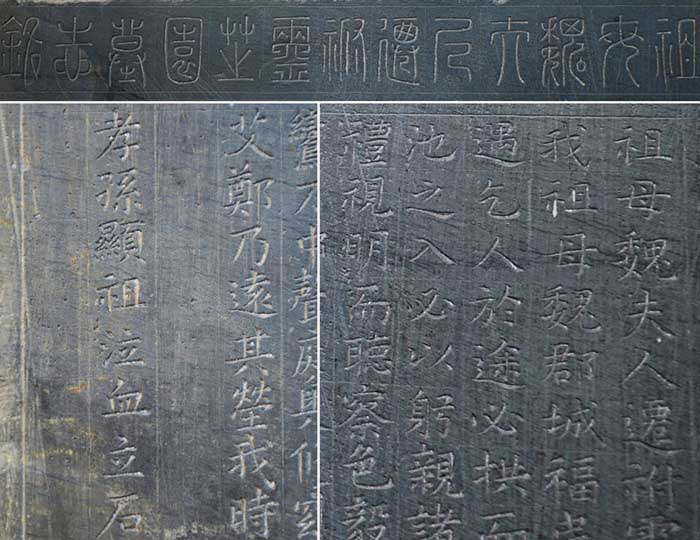 祖母魏夫人遷祔靈芝園墓志銘
祖母魏夫人遷祔靈
我祖母魏郡城福
遇乞人於途必拱而
池之入必以躬親諸
禮視明而聽察色毅
不中聲
艾鄭乃遠其塋我時
孝孫顯祖泣血立石